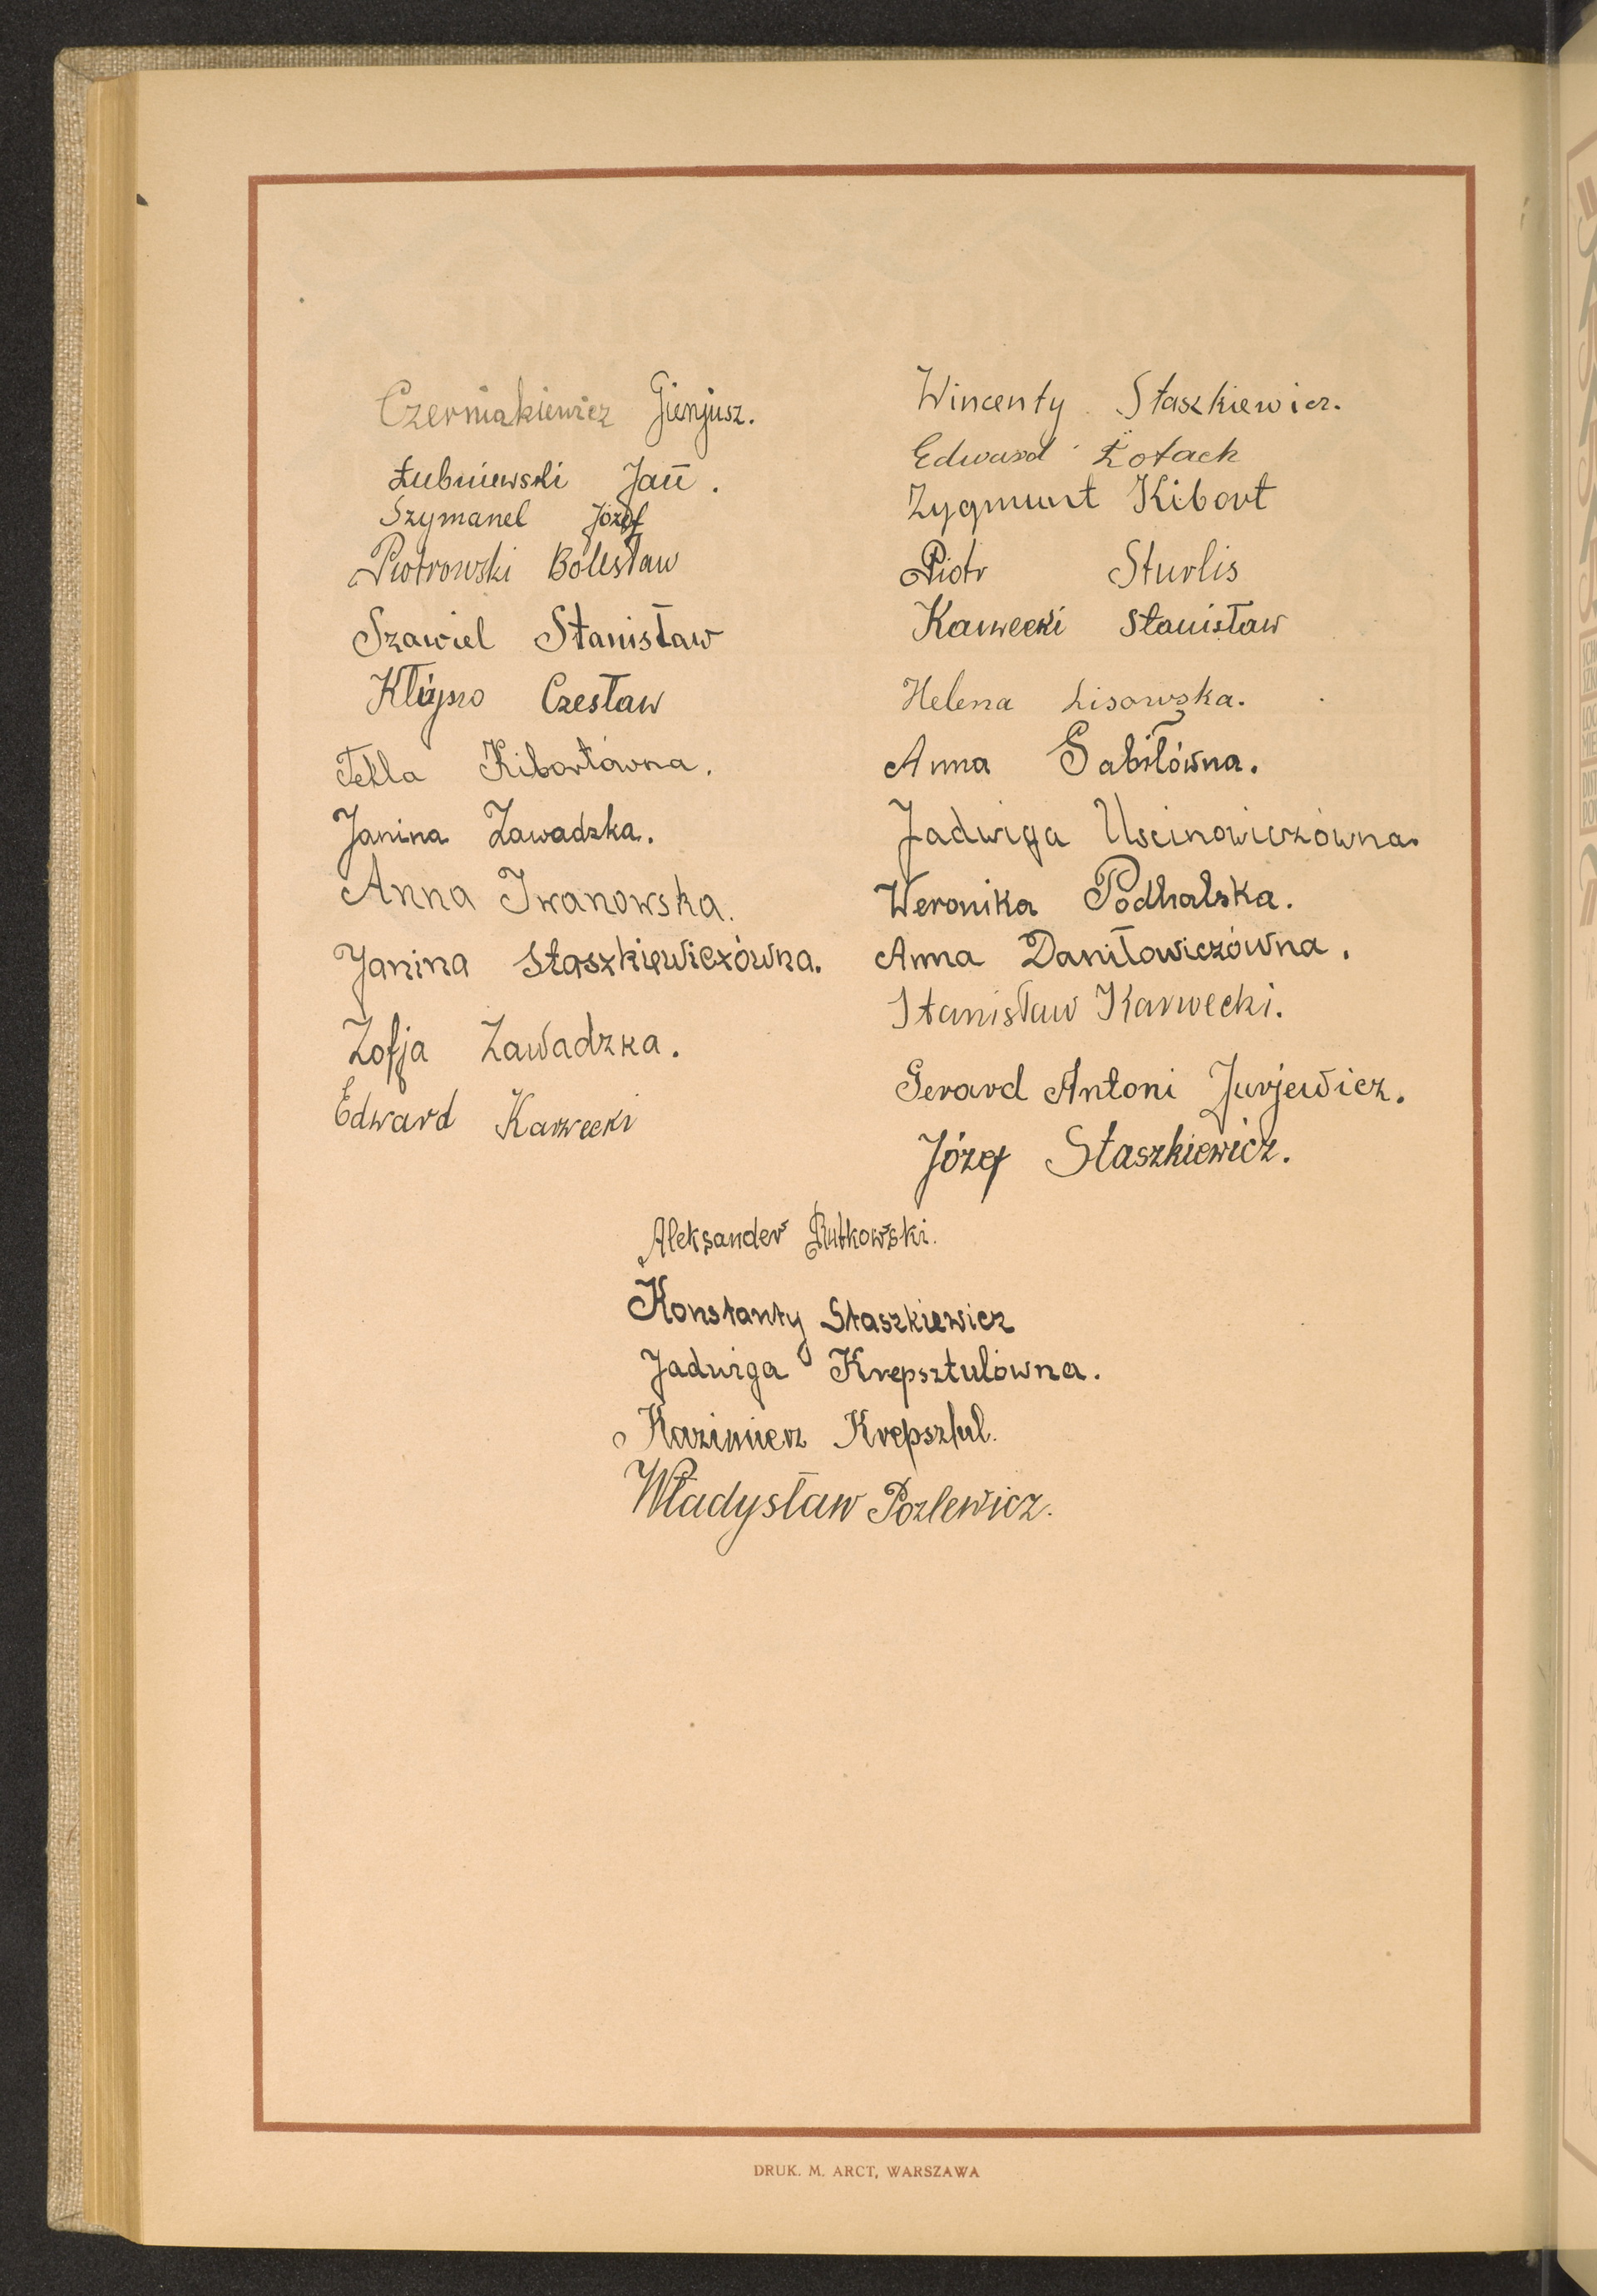 Czerniakiewicz Gienjusz.
Łubniewski Jan.
Szymanel Józef
Piotrowski Bolesław
Szawiel Stanisław
Czesław
Tekla Kibortówna.
Janina Zawadzka.
Anna Iwanowska.
Janina Staszkiewiczówna.
Zofja Zawadzka.
Edward Karwecki
Wincenty Staszkiewicz.
Edward Żołach
Zygmunt Kibort
Piotr Sturlis
Karwecki Stanisław
Helena Lisowska.
Anna Gabiłówna.
Jadwiga Uscinowiczówna.
Weronika Podhalska.
Anna Daniłowiczówna.
Stanisław Karwecki.
Gerard Antoni Jurjewicz.
Józef Staszkiewicz.
Aleksander Rutkowski.
Konstanty Staszkiewicz
Jadwiga Krepsztulówna.
Kazimierz Krepsztul.
Władysław Pozlewicz.
DRUK. M. ARCT, WARSZAWA